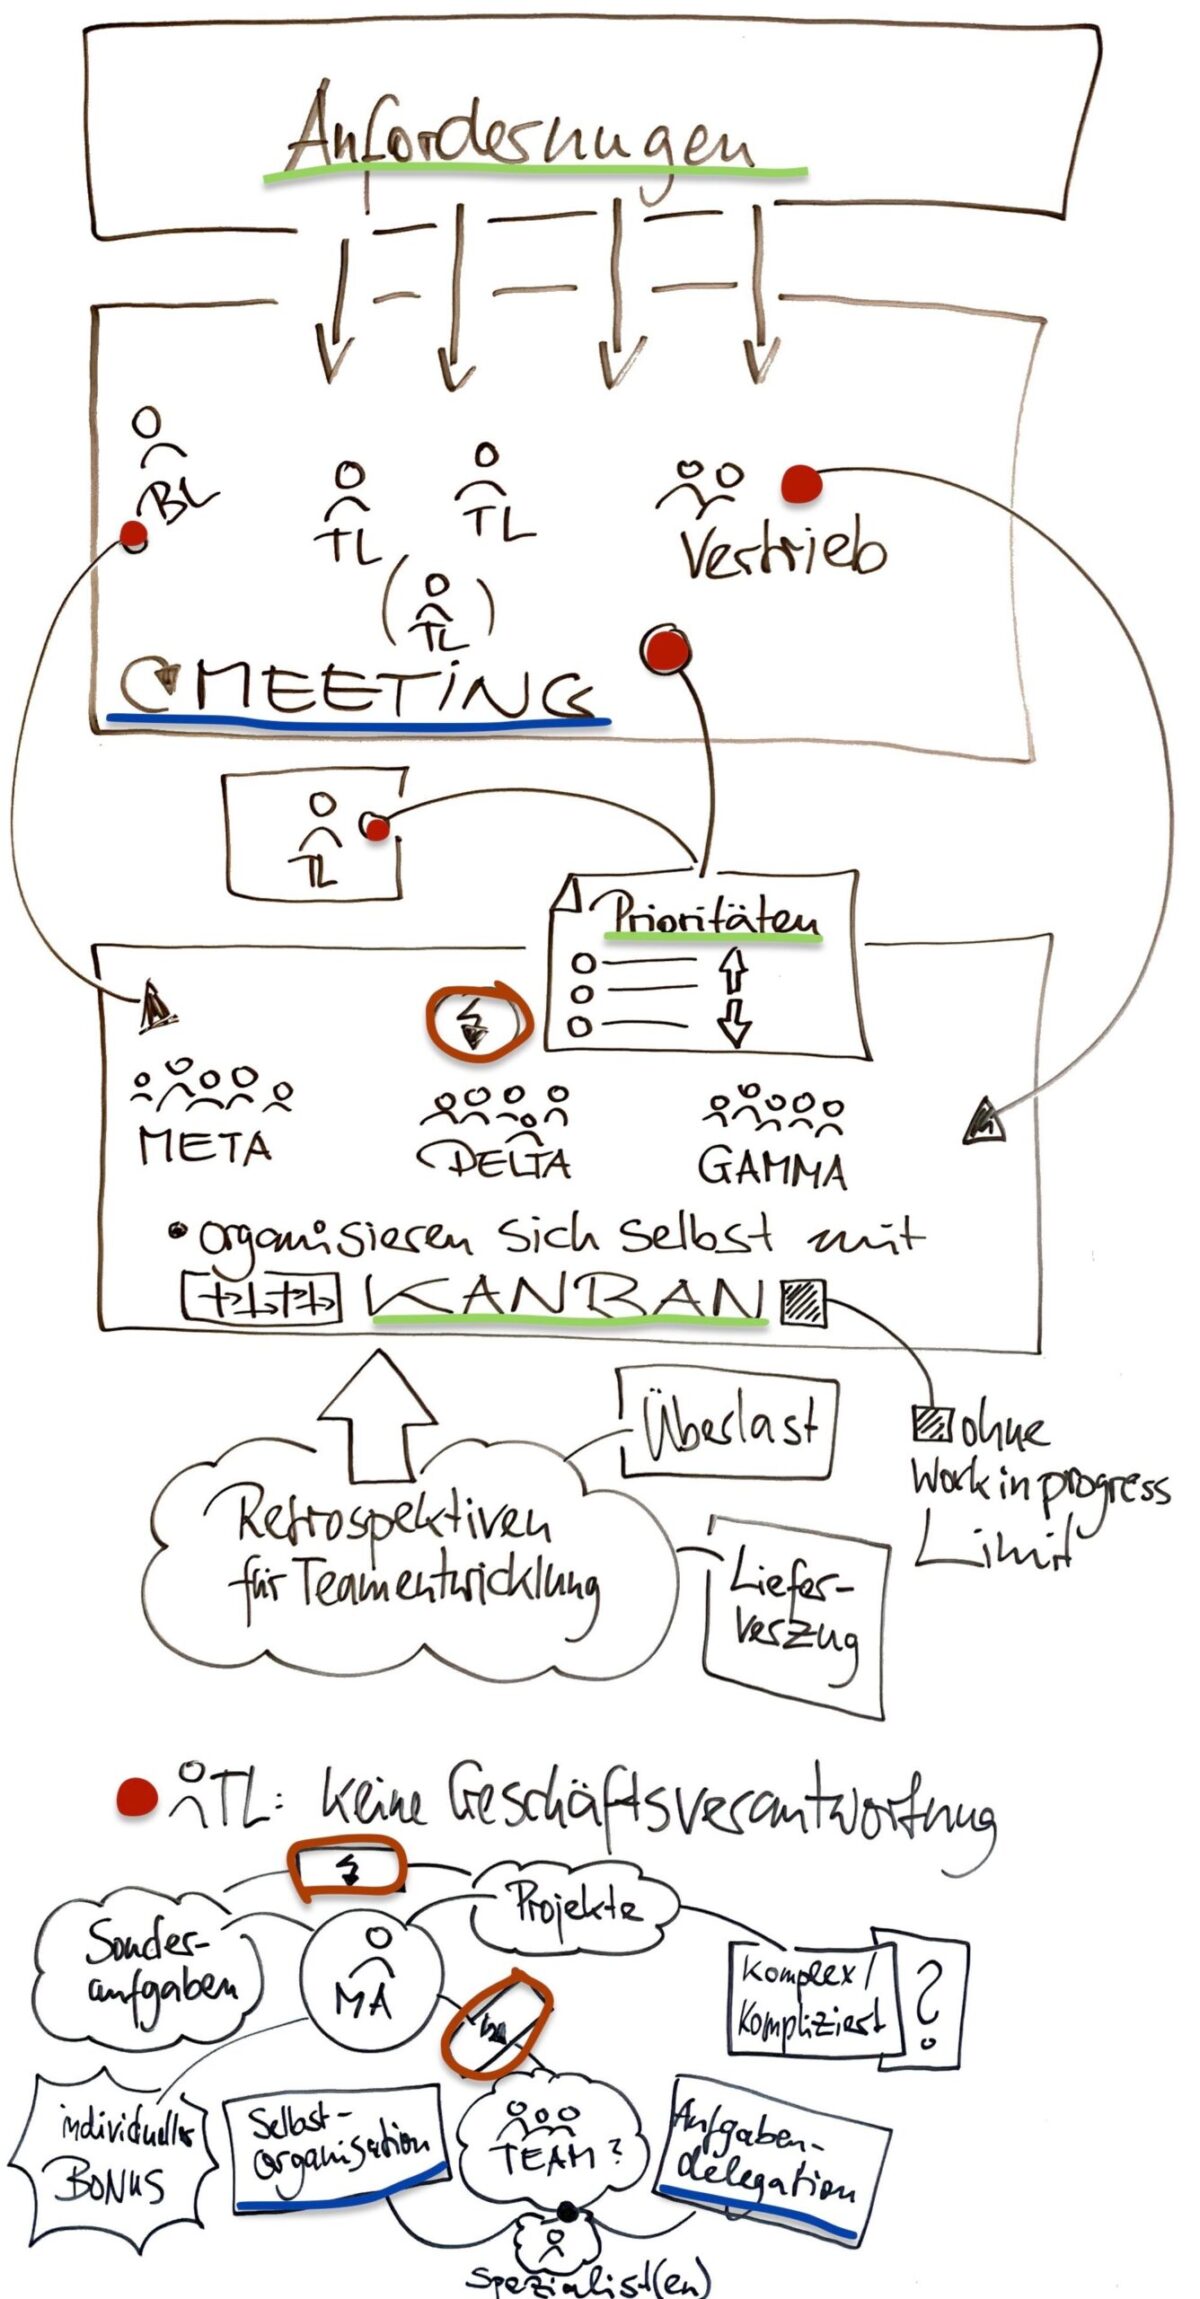 Anforderungen
BL
TL
TL
Vertrieb
(TL)
MEETiNG
TL
Prioritäten
META
DELTA
GAMMA
• organisieren sich selbst mit
KANBAN
Überlast
ohne
Work in progress
Limit
Retrospektiven
für Teamentwicklung
Liefer-
verzug
TL: keine Geschäftsverantwortung
Projekte
Sonder-
aufgaben
MA
Komplex/
Kompliziert
?
individueller
BONUS
Selbst-
organisation
TEAM?
Aufgaben-
delegation
Spezialist(en)